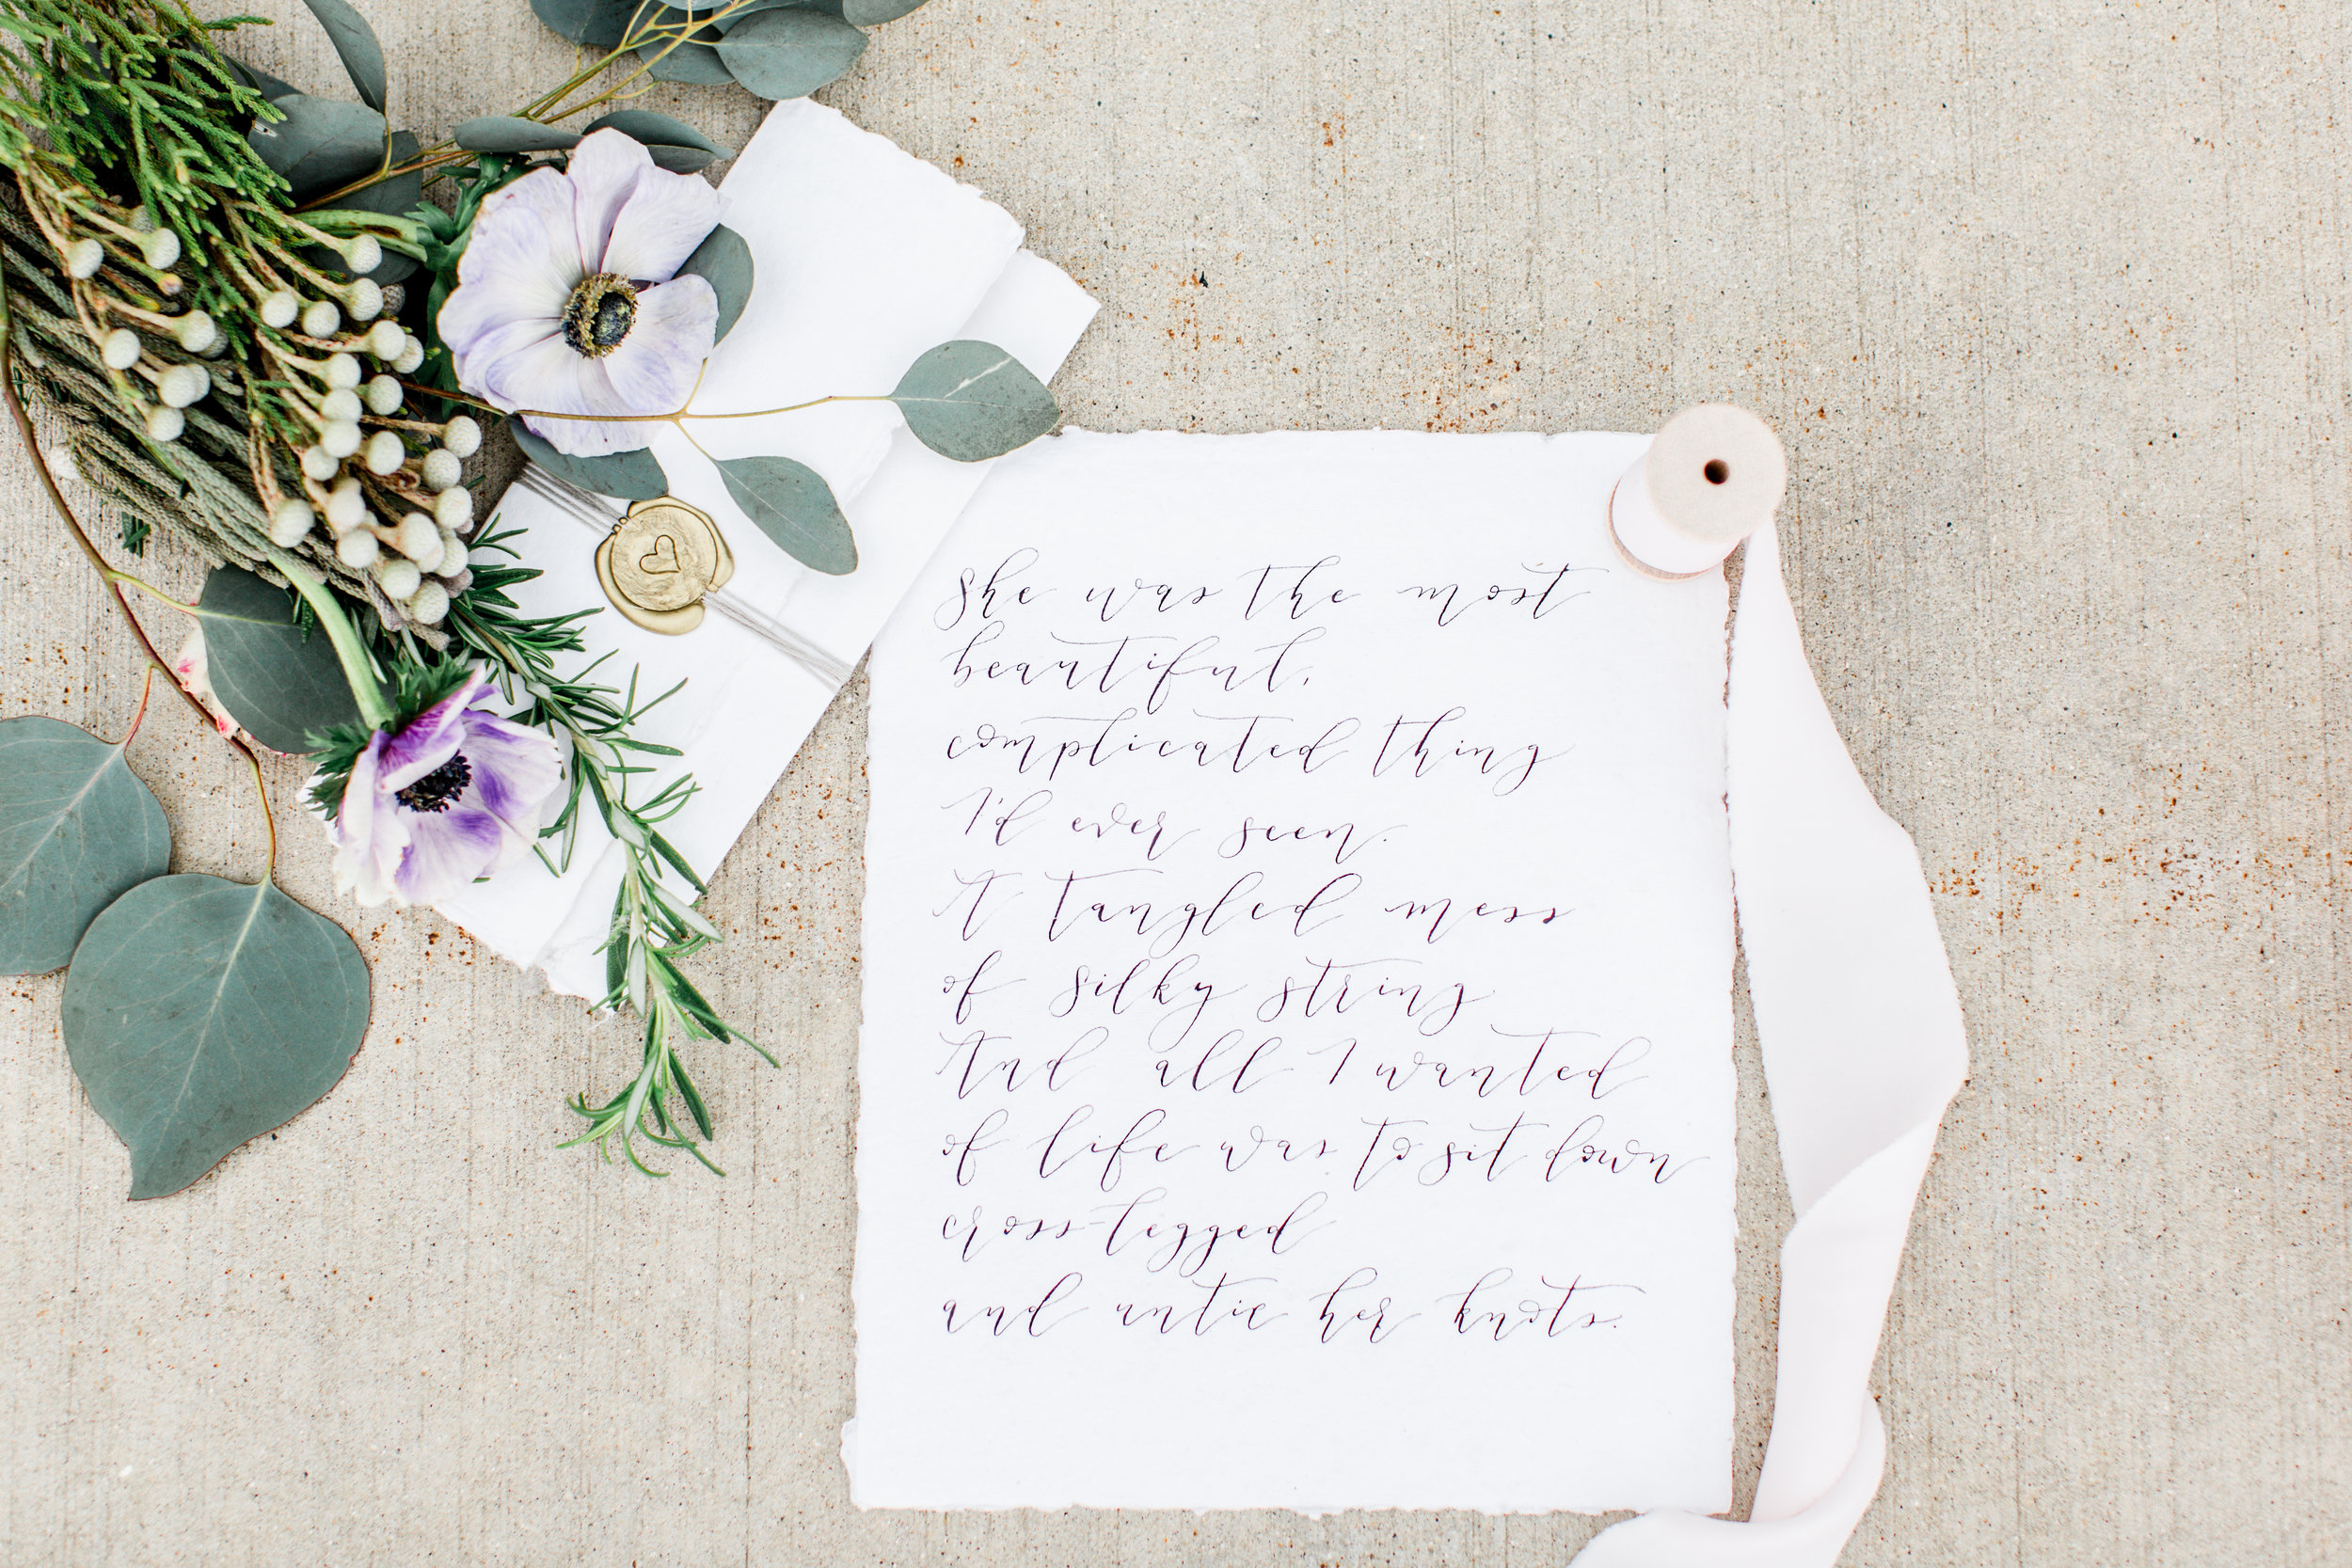 She was the most
beautiful,
complicated thing
I'd ever seen.
A tangled mess
of silky string
And all I wanted
of life was to sit down
cross-legged
and untie her knots.